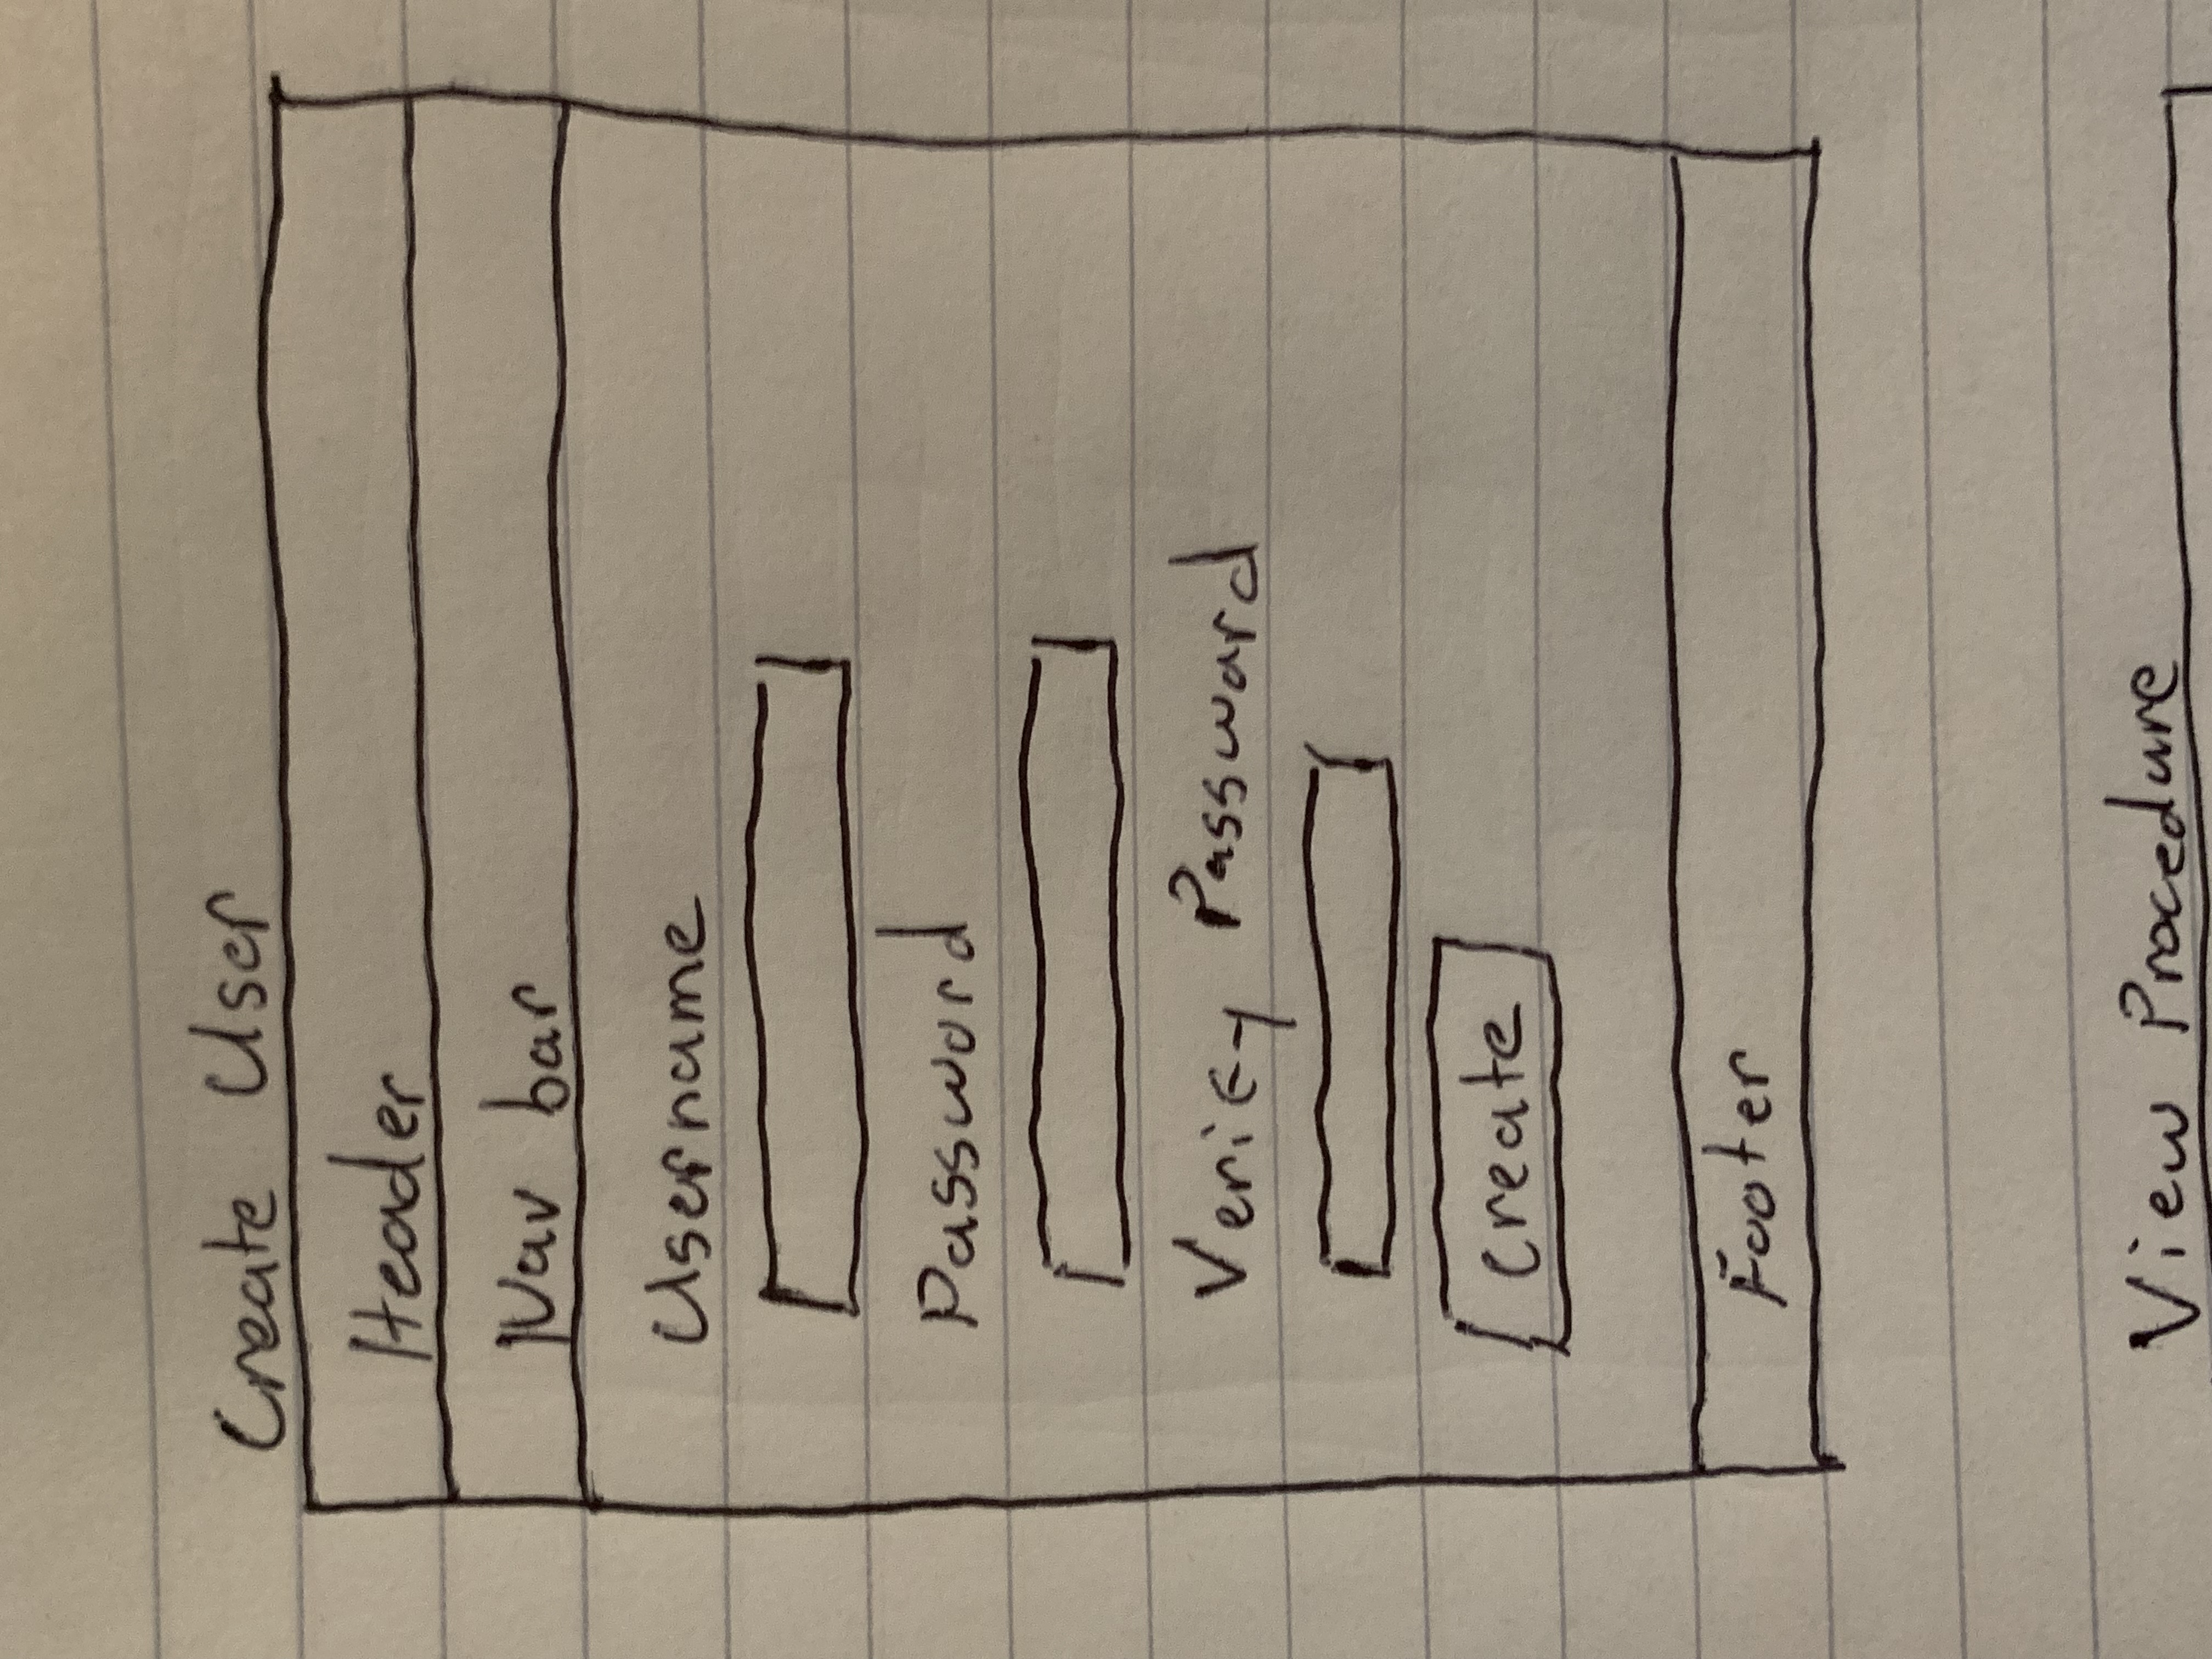 Create User
Header
Nav bar
Username
Password
Verify Password
create
Footer
View Procedure